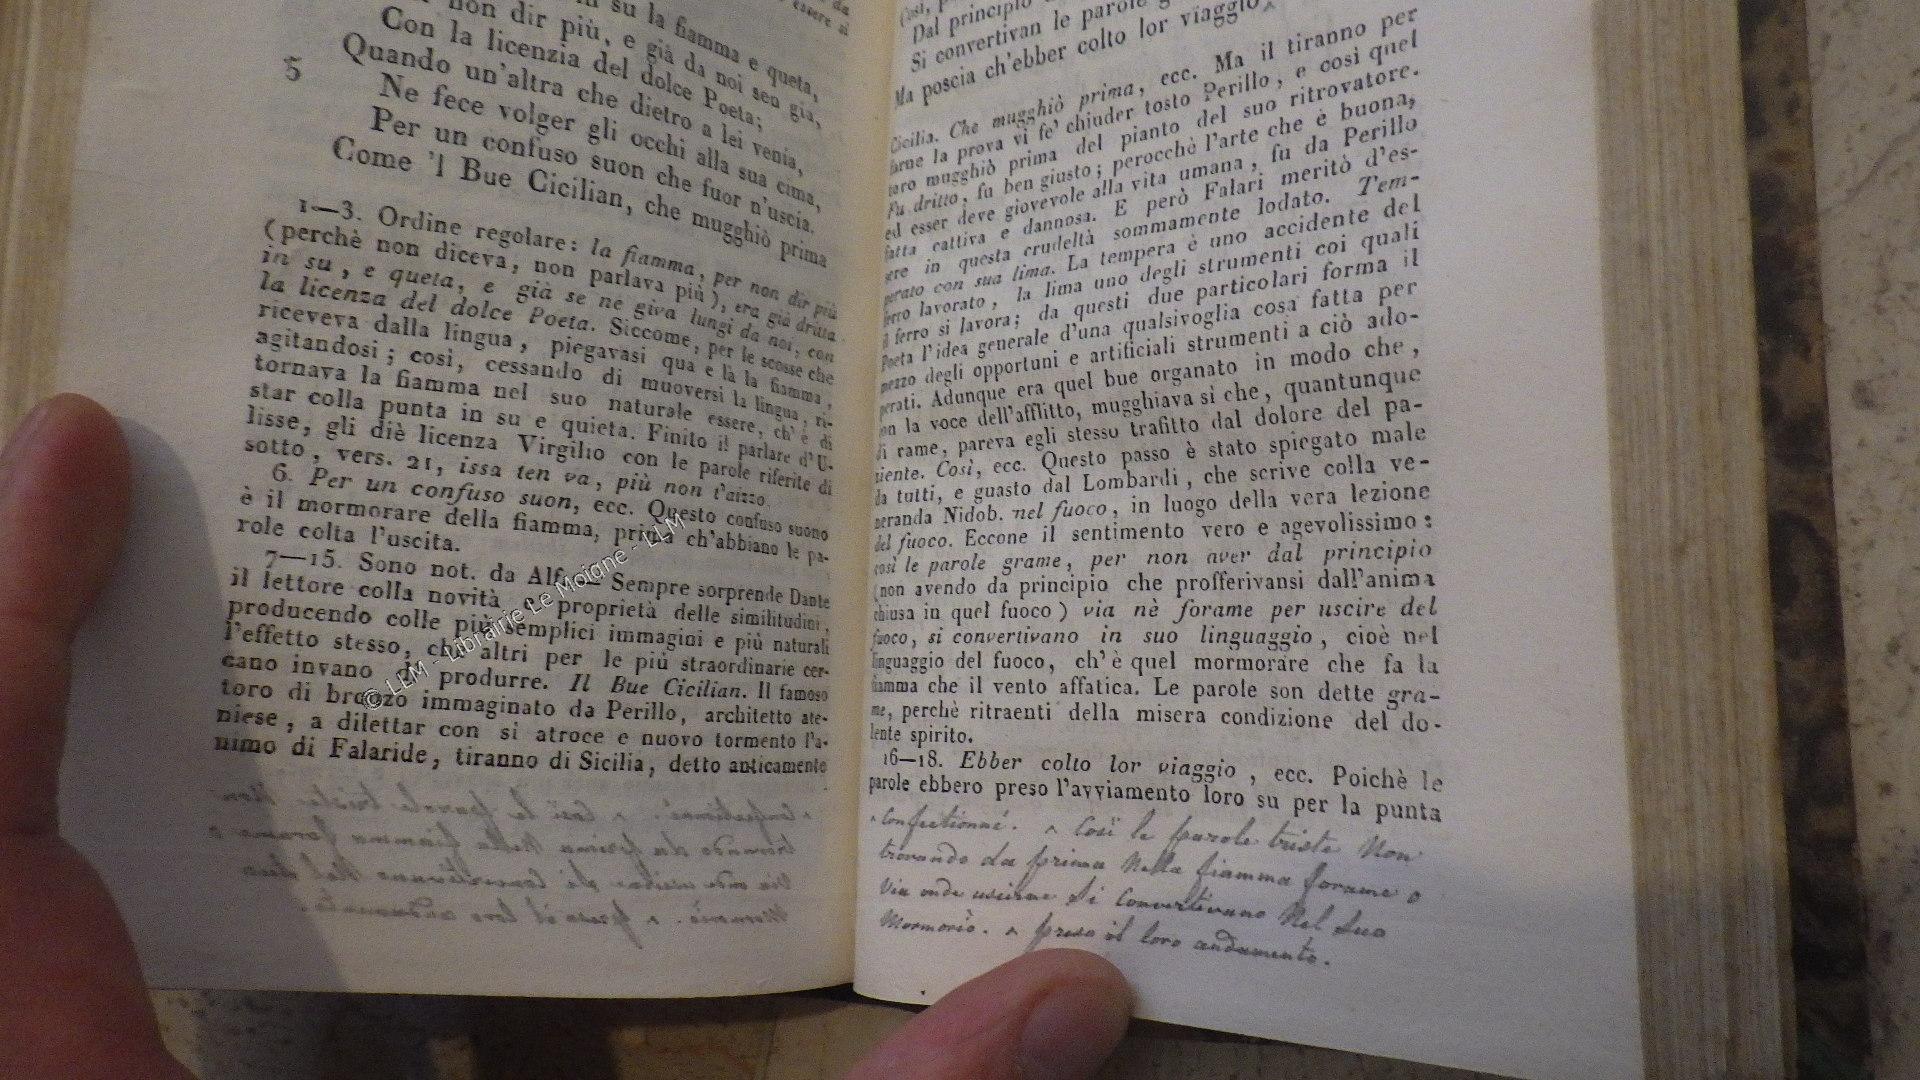 su la fiamma e queta,
non dir più, e già da noi sen gia,
Con la licenzia del dolce Poeta;
5 Quando un'altra che dietro a lei venìa,
Ne fece volger gli occhi alla sua cima,
Per un confuso suon che fuor n'uscia.
Come 'l Bue Cicilian, che mugghiò prima
1—3. Ordine regolare: la fiamma, per non dir più
(perchè non diceva, non parlava più), era già dritta
in su, e queta, e già se ne giva lungi da noi, con
la licenza del dolce Poeta. Siccome, per le scosse che
riceveva dalla lingua, piegavasi qua e là la fiamma,
agitandosi; così, cessando di muoversi la lingua, ri-
tornava la fiamma nel suo naturale essere, ch'è di
star colla punta in su e quieta. Finito il parlare d'U-
lisse, gli diè licenza Virgilio con le parole riferite di
sotto, vers. 21, issa ten va, più non t'aizzo.
6. Per un confuso suon, ecc. Questo confuso suono
è il mormorare della fiamma, prima ch'abbiano le pa-
role colta l'uscita.
7—15. Sono not. da Alf. — Sempre sorprende Dante
il lettore colla novità e proprietà delle similitudini,
producendo colle più semplici immagini e più naturali
l'effetto stesso, che altri per le più straordinarie cer-
cano invano di produrre. Il Bue Cicilian. Il famoso
toro di bronzo immaginato da Perillo, architetto ate-
niese, a dilettar con sì atroce e nuovo tormento l'a-
nimo di Falaride, tiranno di Sicilia, detto anticamente
© LLM - Librairie Le Moigne - LLM
Dal principio
Si convertivan le parole
Ma poscia ch'ebber colto lor viaggio
Cicilia. Che mugghiò prima, ecc. Ma il tiranno per
farne la prova vi fe' chiuder tosto Perillo, e così quel
toro mugghiò prima del pianto del suo ritrovatore.
Fu dritto, fu ben giusto; perocchè l'arte che è buona,
ed esser deve giovevole alla vita umana, fu da Perillo
fatta cattiva e dannosa. E però Falari meritò d'es-
sere in questa crudeltà sommamente lodato. Tem-
perato con sua lima. La tempera è uno accidente del
ferro lavorato, la lima uno degli strumenti coi quali
il ferro si lavora; da questi due particolari forma il
Poeta l'idea generale d'una qualsivoglia cosa fatta per
mezzo degli opportuni e artificiali strumenti a ciò ado-
perati. Adunque era quel bue organato in modo che,
con la voce dell'afflitto, mugghiava sì che, quantunque
di rame, pareva egli stesso trafitto dal dolore del pa-
ziente. Così, ecc. Questo passo è stato spiegato male
da tutti, e guasto dal Lombardi, che scrive colla ve-
neranda Nidob. nel fuoco, in luogo della vera lezione
del fuoco. Eccone il sentimento vero e agevolissimo:
così le parole grame, per non aver dal principio
(non avendo da principio che profferivansi dall'anima
chiusa in quel fuoco) via nè forame per uscire del
fuoco, si convertivano in suo linguaggio, cioè nel
linguaggio del fuoco, ch'è quel mormorare che fa la
fiamma che il vento affatica. Le parole son dette gra-
me, perchè ritraenti della misera condizione del do-
lente spirito.
16—18. Ebber colto lor viaggio, ecc. Poichè le
parole ebbero preso l'avviamento loro su per la punta
^ Confectionné. ^ Così le parole triste Non
trovando da prima Nella fiamma forame o
Via onde uscirne Si Convertivano Nel Suo
Mormorio. ^ preso il loro andamento.